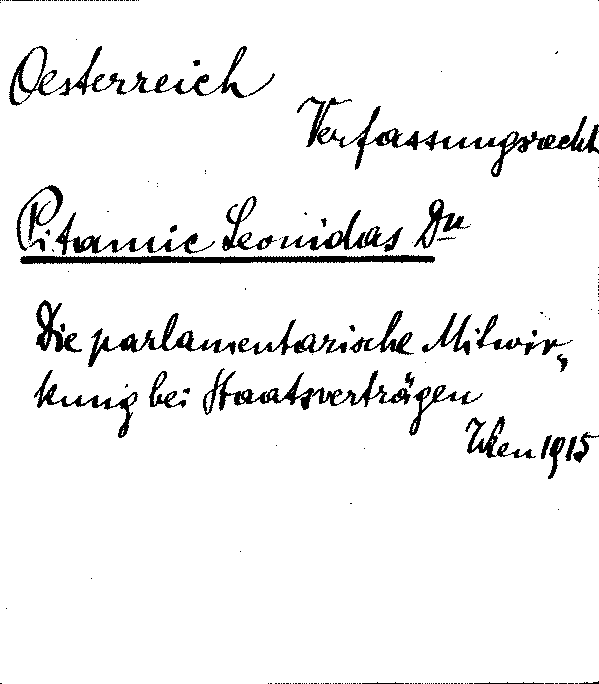 Oesterreich
Verfassungsrecht
Pitamic Leonidas Dr
Die parlamentarische Mitwir„
kung bei Staatsverträgen
Wien 1915